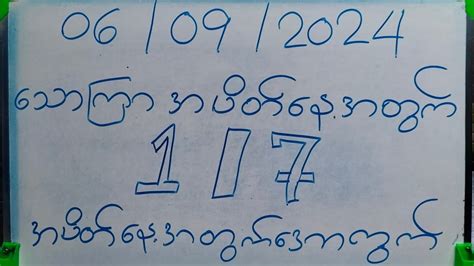 06/09/2024
သောကြာ အပိတ်နေ့အတွက်
1/7
အပိတ်နေ့အတွက်ဒေကကွက်